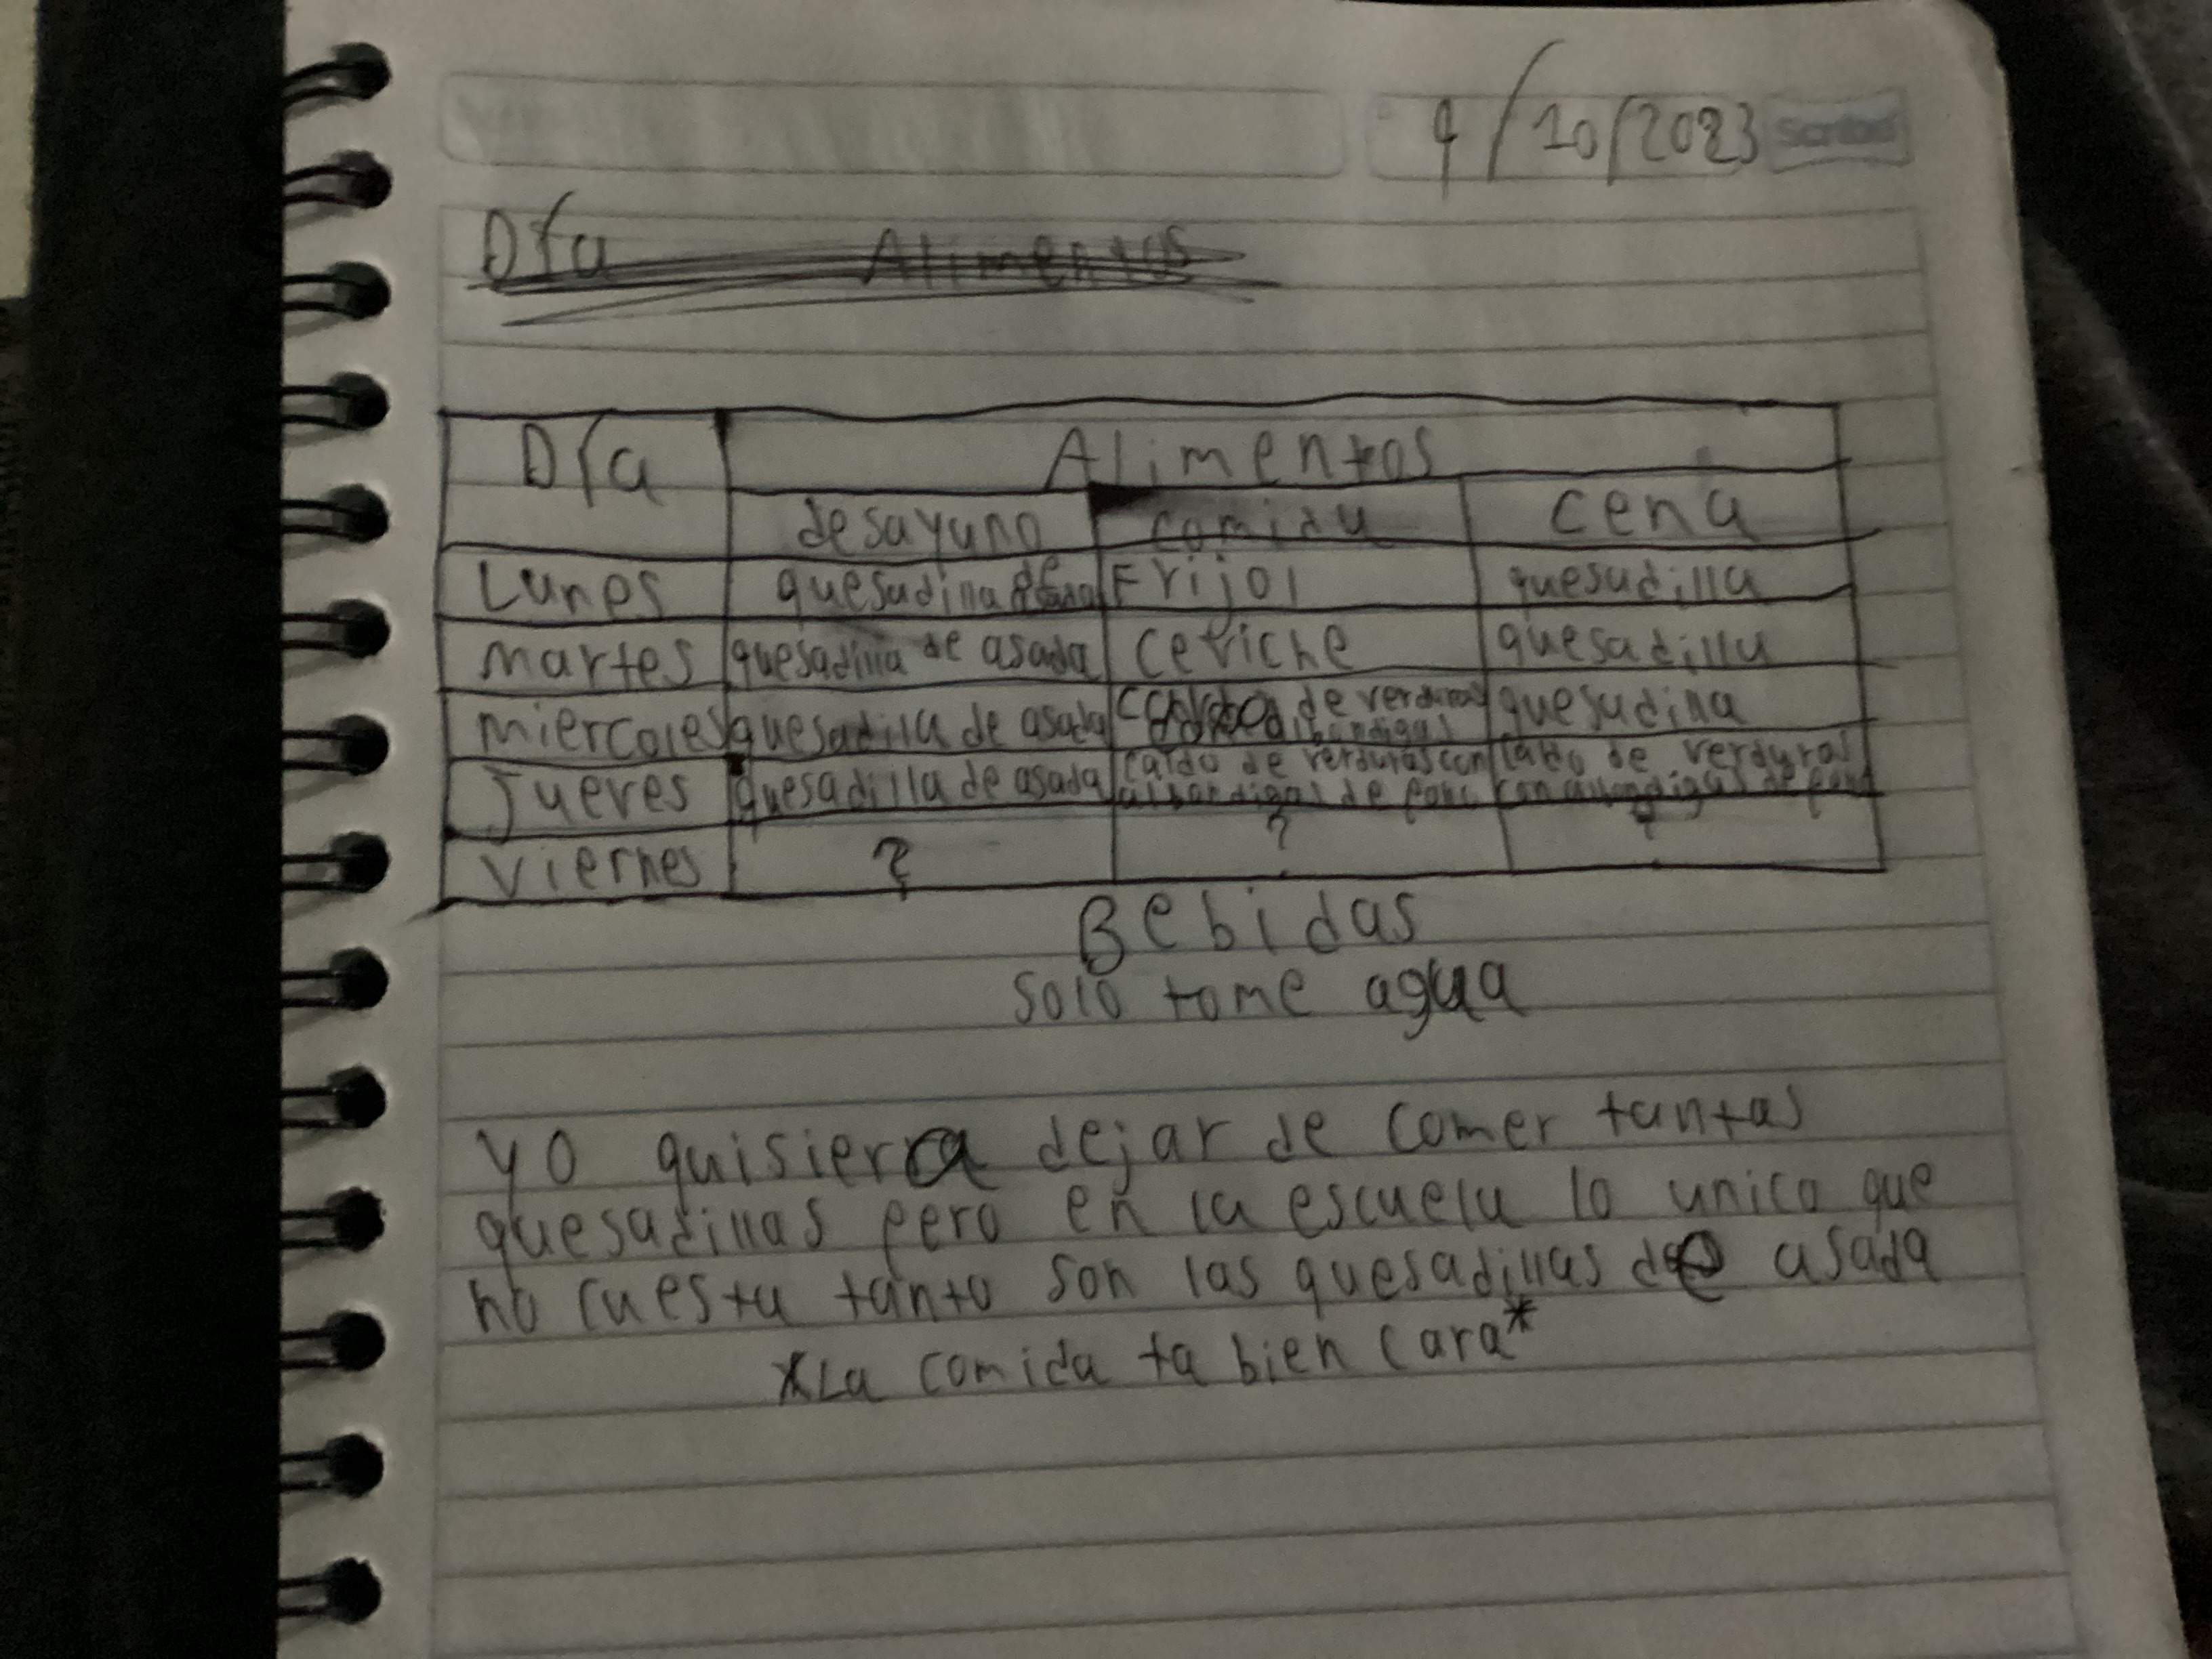 9/10/2023 Scribe
Día Alimentos
Día Alimentos
desayuno comida cena
Lunes quesadilla de Frijol quesadilla
martes quesadilla de asada ceviche quesadilla
miercoles quesadilla de asada de verduras quesadilla
albondigas
Jueves quesadilla de asada caldo de verduras con caldo de verduras
albondigas de con albondigas de
viernes ? ? ?
Bebidas
solo tome agua
yo quisiera dejar de comer tantas
quesadillas pero en la escuela lo unico que
no cuesta tanto son las quesadillas de asada
*La comida ta bien cara*